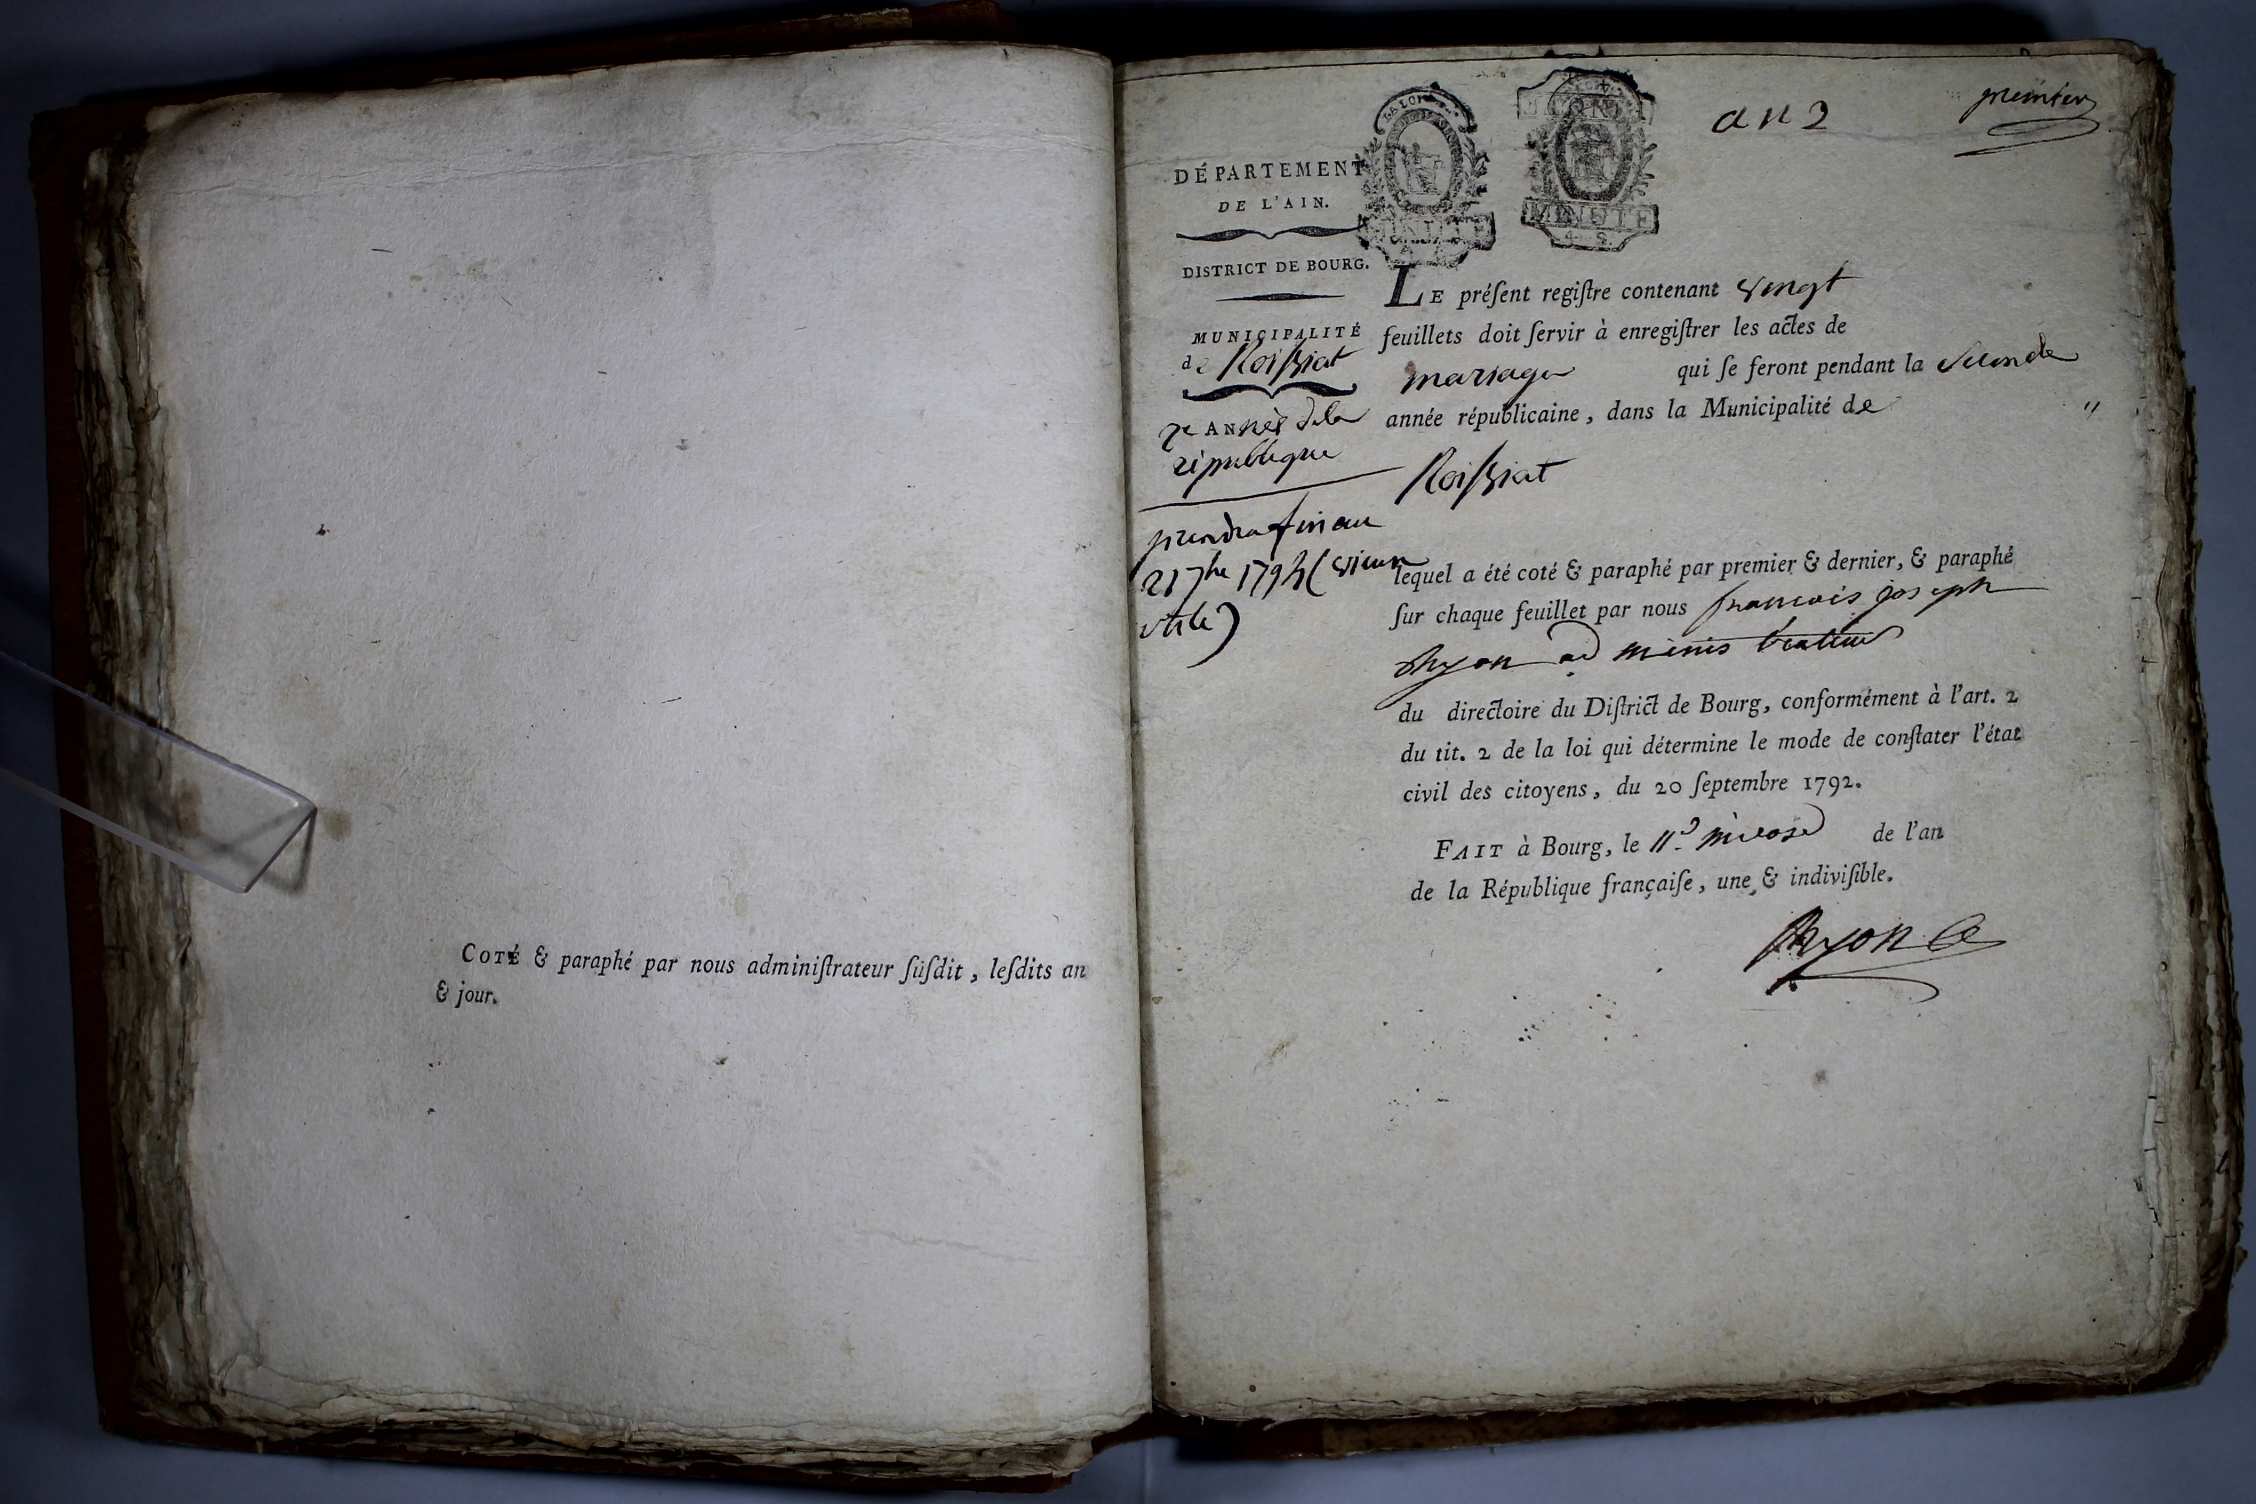 COTÉ & paraphé par nous adminiſtrateur ſuſdit, leſdits an
& jour.
an 2
premier
LA LOI
MINUTE
4 S.
DÉPARTEMENT
DE L'AIN.
DISTRICT DE BOURG.
MUNICIPALITÉ
de Roissiat
2e ANNÉE de la
république
prendra fin au
21 7bre 1794 (vieux
stile)
LE préſent regiſtre contenant vingt
feuillets doit ſervir à enregiſtrer les actes de
mariage qui ſe feront pendant la seconde
année républicaine, dans la Municipalité de "
Roissiat
lequel a été coté & paraphé par premier & dernier, & paraphé
ſur chaque feuillet par nous francois joseph
administrateur
du directoire du Diſtrict de Bourg, conformément à l'art. 2
du tit. 2 de la loi qui détermine le mode de conſtater l'état
civil des citoyens, du 20 ſeptembre 1792.
FAIT à Bourg, le 11e nivose de l'an
de la République françaiſe, une & indiviſible.